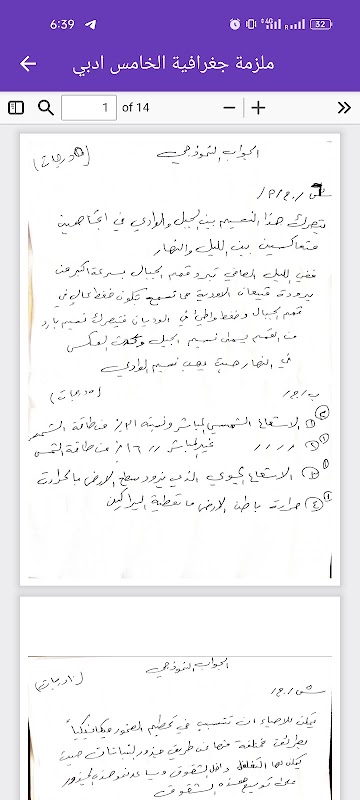 6:39
32
ملزمة جغرافية الخامس ادبي
1 of 14
الجواب النموذجي
يتحرك هذا النسيم بين الجبل والوادي في اتجاهين
متعاكسين بين الليل والنهار
ففي الليل الصافي تبرد قمم الجبال بسرعة اكبر من
برودة قيعان الاودية مما يسمح بتكون ضغط عالي في
قمم الجبال وضغط واطئ في الوديان فيتحرك نسيم بارد
من القمم يسمى نسيم الجبل العكس
في النهار حيث يهب نسيم الوادي
ب/ج/
① الاشعاع الشمسي المباشر ونسبته من طاقة الشمس
② // // غير المباشر // ١٦٪ من طاقة الشمس
③ الاشعاع الحيوي الذي يزود سطح الارض بالحرارة
④ حرارة باطن الارض ما تعطيه البراكين
الجواب النموذجي
يمكن للاحياء ان تتسبب في تحطيم الصخور ميكانيكياً
بطرائق مختلفة منها عن طريق جذور النباتات حيث
يمكن لها التغلغل داخل الشقوق ويساعد نمو هذه الجذور
على توسيع هذه الشقوق